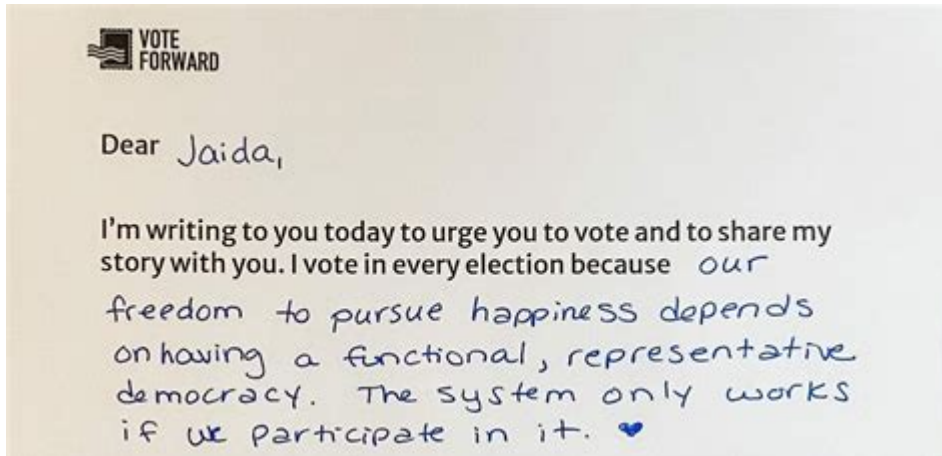 VOTE
FORWARD
Dear Jaida,
I'm writing to you today to urge you to vote and to share my
story with you. I vote in every election because our
freedom to pursue happiness depends
on having a functional, representative
democracy. The system only works
if we participate in it. ♥